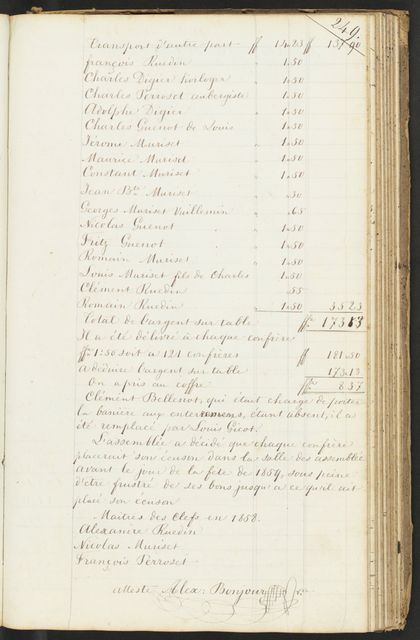 249.
Transport d'autre part ff 14»23 ff 137»90
françois Ruedin " 1»50
Charles Digier horloger " 1»50
Charles Perroset aubergiste " 1»50
Adolphe Digier " 1»50
Charles Guenot de Louis " 1»50
Jérome Muriset " 1»50
Maurice Muriset " 1»50
Constant Muriset " 1»50
Jean Bte Muriset " »50
Georges Muriset Vuillemin " »65
Nicolas Guenot " 1»50
Fritz Guenot " 1»50
Romain Muriset " 1»50
Louis Muriset fils de Charles " 1»50
Clément Ruedin " »55
Romain Ruedin " 1»50 35»23
Total de l'argent sur table ff 173»13
Il a été délivré à chaque confrère
ff 1»50 soit à 121 confrères ff 181»50
à déduire l'argent sur table 173»13
On a pris au coffre ff 8»37
Clément Bellenot, qui était chargé de porter
la banière aux enterremens, étant absent, il a
été remplacé par Louis Gicot.
L'assemblée a décidé que chaque confrère
placerait son écuson dans la salle des assemblées
avant le jour de la fête de 1859, sous peine
d'etre frustré de ses bons jusqu'a ce qu'il ait
placé son écuson
Maitres des Clefs en 1858.
Alexandre Ruedin
Nicolas Muriset
François Perroset
atteste Alex: Bonjour